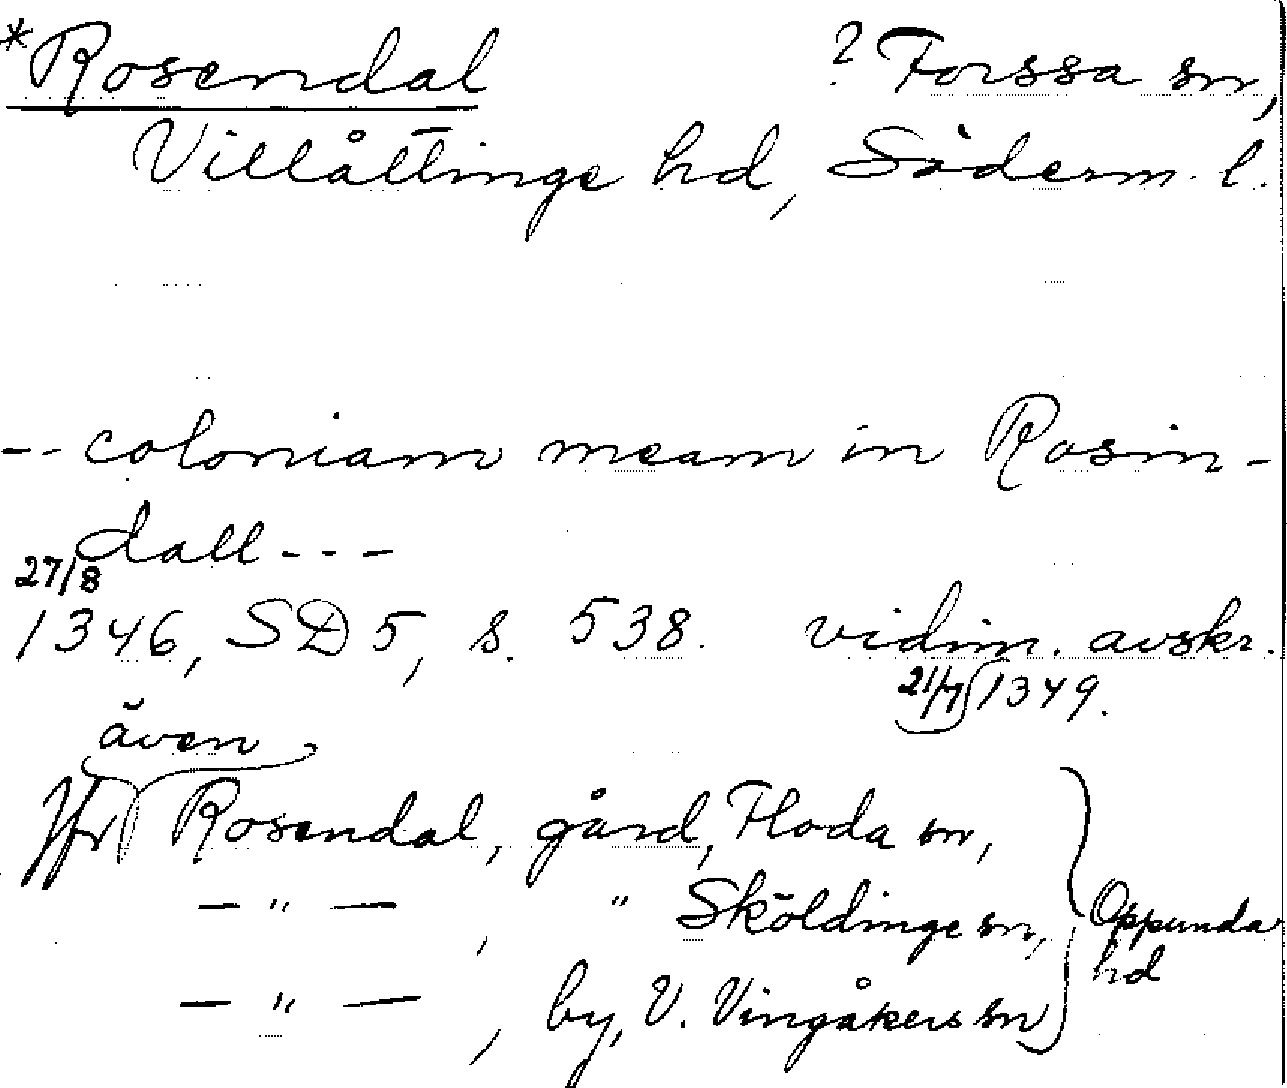 *Rosendal ? Forssa sn,
Villåttinge hd, Söderm. l.
-- coloniam meam in Rosin-
dall ---
27/8
1346, SD 5, s. 538. vidim. avskr.
21/7 1349.
även
Jfr Rosendal, gård, Floda sn,
— " — , " Sköldinge sn, Oppunda
hd
— " — , by, V. Vingåkers sn